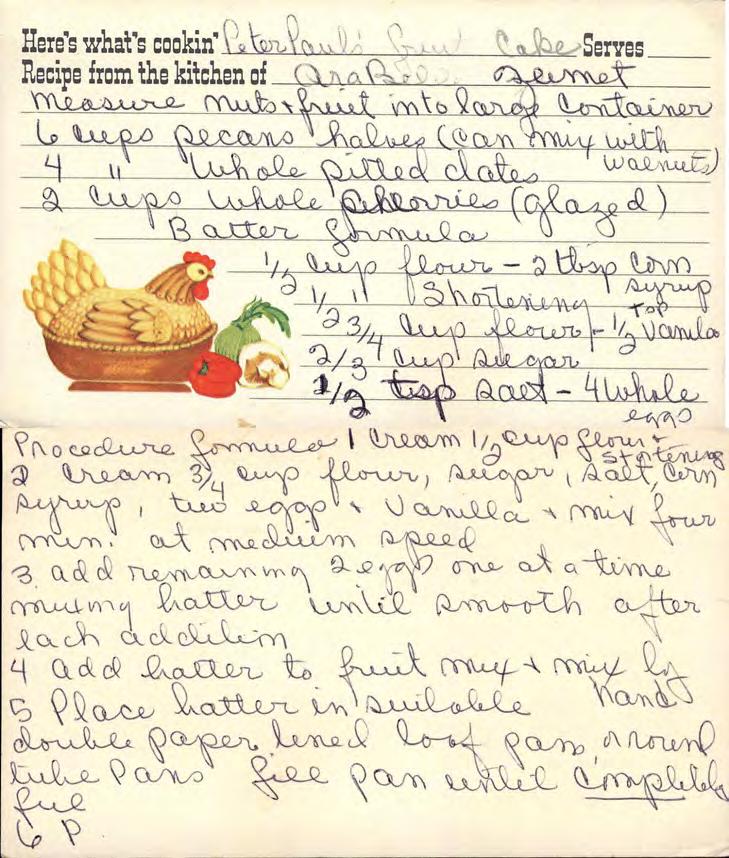 Here's what's cookin' Peter Paul's Fruit Cake Serves
Recipe from the kitchen of
Measure nuts + fruit into large container
6 cups pecans halves (can mix with walnuts)
4 " Whole pitted dates
2 cups whole cherries (glazed)
Batter formula
1/2 cup flour - 2 tbsp corn syrup
1/2 " Shortening
3/4 cup flour - 1/2 tsp Vanilla
2/3 cup sugar
1/2 tsp salt - 4 Whole eggs
Procedure formula 1 Cream 1/2 cup flour + shortening
2 Cream 3/4 cup flour, sugar, salt, corn
syrup, two eggs + Vanilla + mix four
min. at medium speed
3 add remaining 2 eggs one at a time
mixing batter until smooth after
each addition
4 Add batter to fruit mix + mix by hand
5 Place batter in suitable
double paper lined loaf pans or round
tube Pans fill pan until completely
ful
6 P